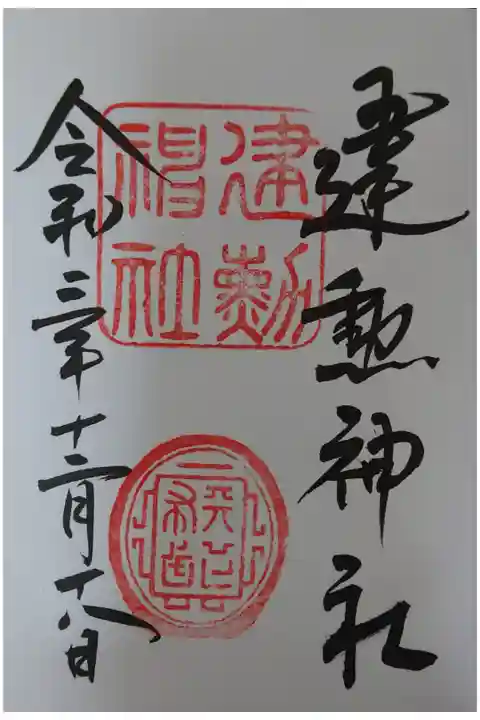 建勲神社
建勲
神社
令和三年十二月十八日